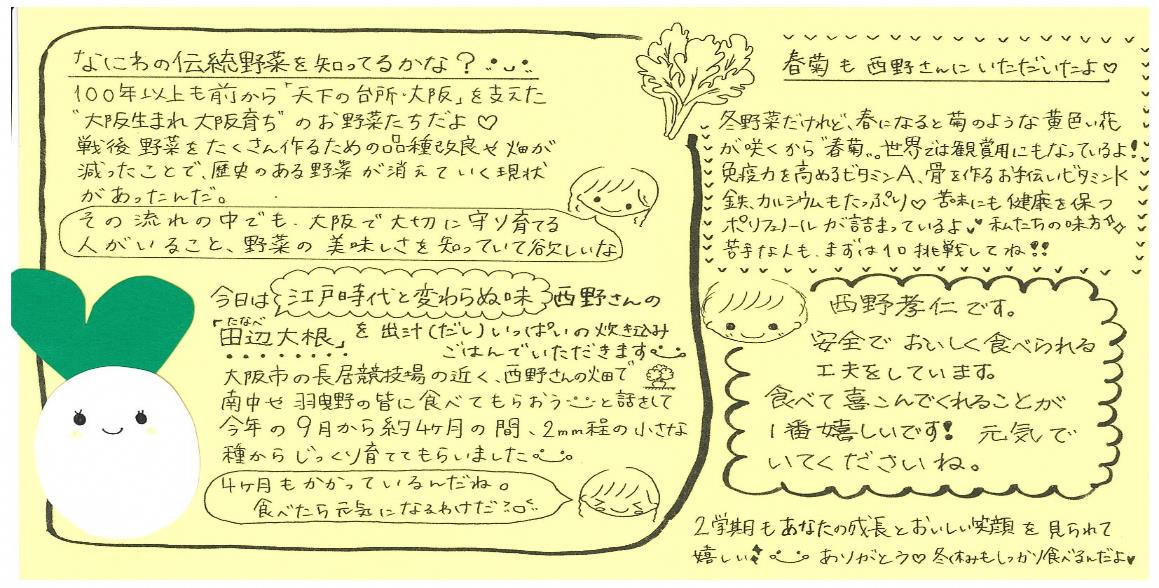 なにわの伝統野菜を知ってるかな？
100年以上も前から「天下の台所・大阪」を支えた
"大阪生まれ 大阪育ち"のお野菜たちだよ♡
戦後 野菜をたくさん作るための品種改良や畑が
減ったことで、歴史のある野菜が消えていく現状
があったんだ。
その流れの中でも、大阪で大切に守り育てる
人がいること、野菜の美味しさを知っていて欲しいな
今日は 江戸時代と変わらぬ味 西野さんの
たなべ
「田辺大根」を出汁(だし)いっぱいの炊き込み
ごはんでいただきます
大阪市の長居競技場の近く、西野さんの畑で
南中や羽曳野の皆に食べてもらおうと話さして
今年の9月から約4ヶ月の間、2mm程の小さな
種からじっくり育ててもらいました
4ヶ月もかかっているんだね。
食べたら元気になるわけだ
春菊も西野さんにいただいたよ♡
冬野菜だけれど、春になると菊のような黄色い花
が咲くから"春菊"。世界では観賞用にもなっているよ!
免疫力を高めるビタミンA、骨を作るお手伝いビタミンK
鉄、カルシウムもたっぷり♡ 苦味にも健康を保つ
ポリフェノールが詰まっているよ♥ 私たちの味方✧
苦手な人も、まずは1口挑戦してね!!
西野孝仁です。
安全でおいしく食べられる
工夫をしています。
食べて喜こんでくれることが
1番嬉しいです! 元気で
いてくださいね。
2学期もあなたの成長とおいしい笑顔を見られて
嬉しい ありがとう♡ 冬休みもしっかり食べるんだよ♥